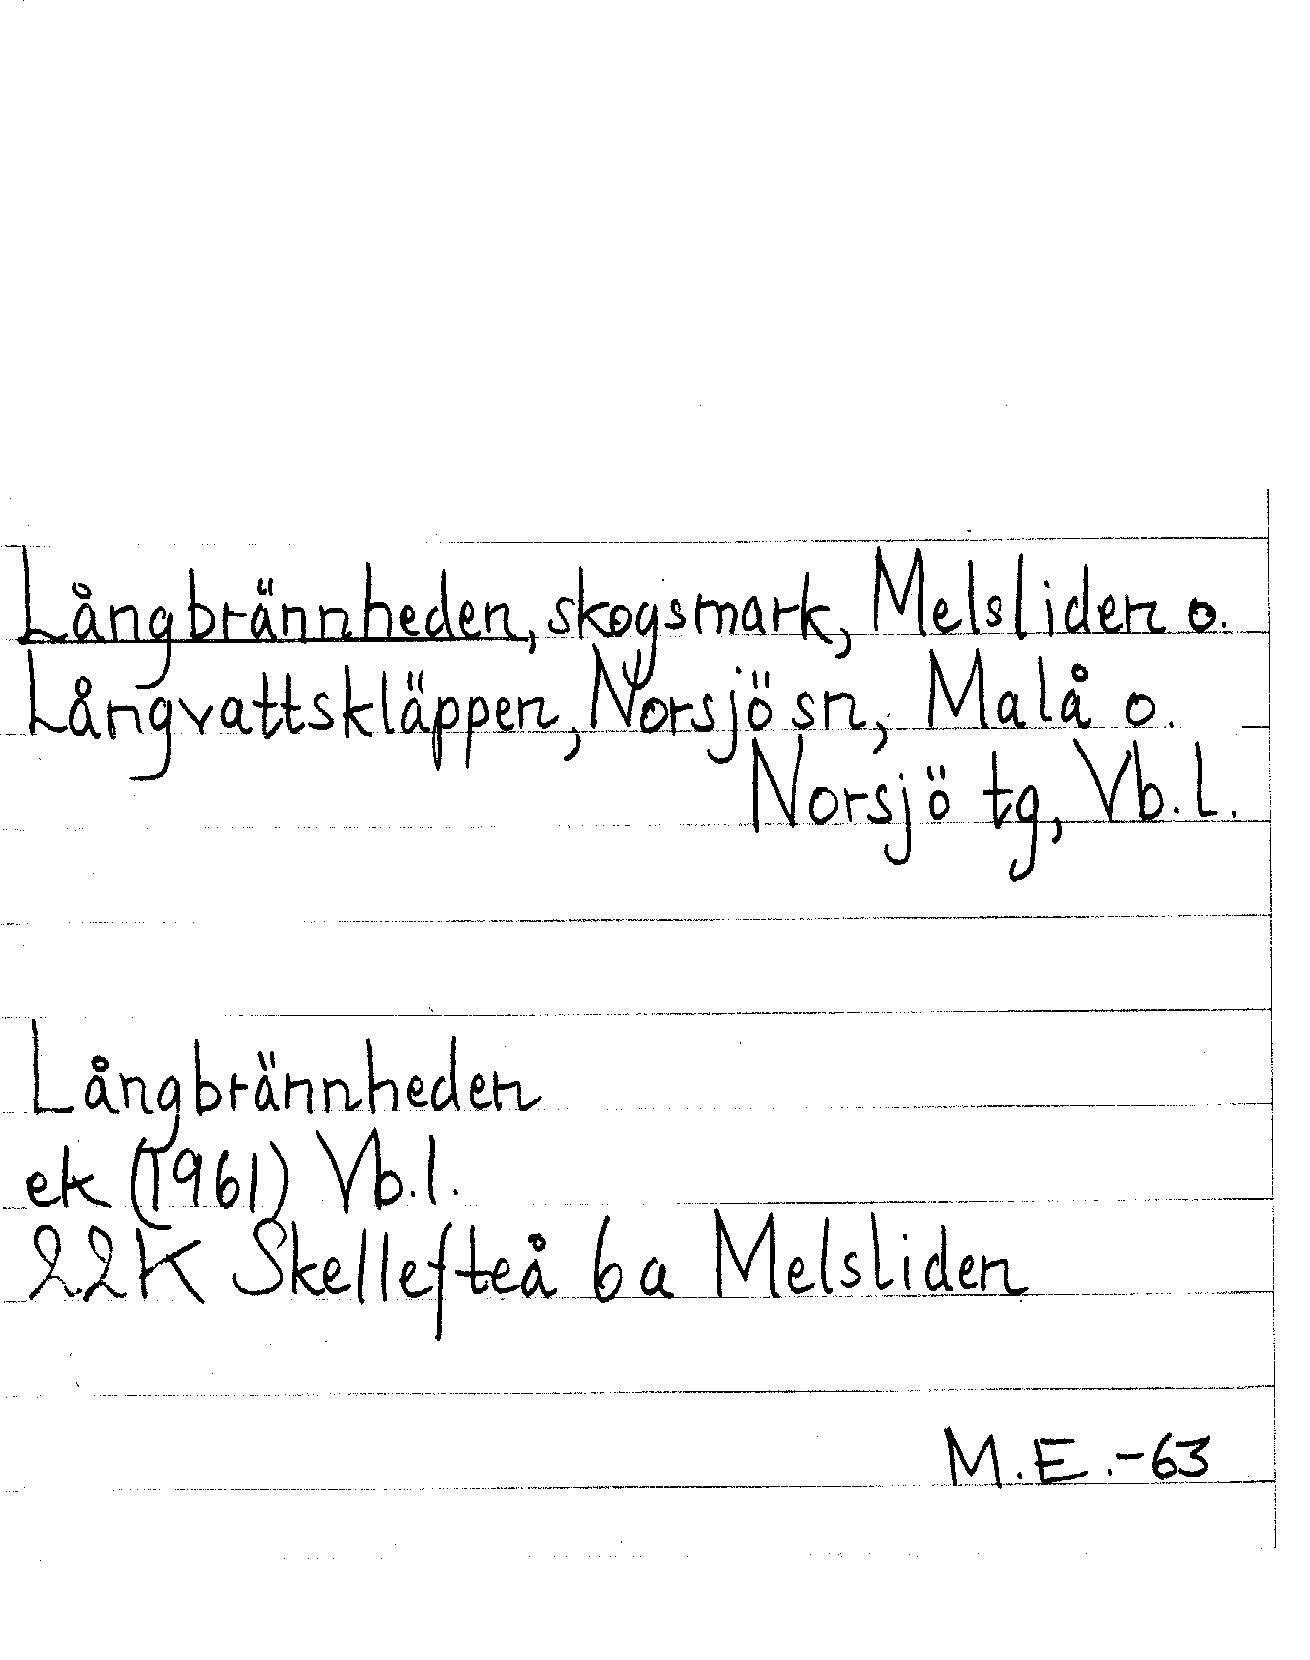 Långbrännheden, skogsmark, Melsliden o.
Långvattskläppen, Norsjö sn, Malå o.
Norsjö tg, Vb.l.
Långbrännheden
ek (1961) Vb.l.
22K Skellefteå 6a Melsliden
M.E.-63